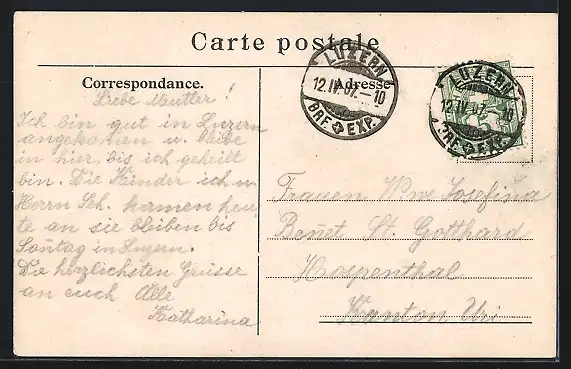 Carte postale
Correspondance.
Adresse
LUZERN
12.IV.07.-10
BRF. EXP.
LUZERN
12.IV.07.-10
BRF. EXP.
Liebe Mutter!
Ich bin gut in Luzern
angekommen u. bleibe
in hier, bis ich geheilt
bin. Die Kinder ich u.
Herrn Sch. kamen heu
te an sie bleiben bis
Sontag in Luzern.
Die herzlichsten Grüsse
an euch Alle
Katharina
Frauen Wwe Josefina
Bonet St. Gotthard
Hospenthal
Kanton Uri